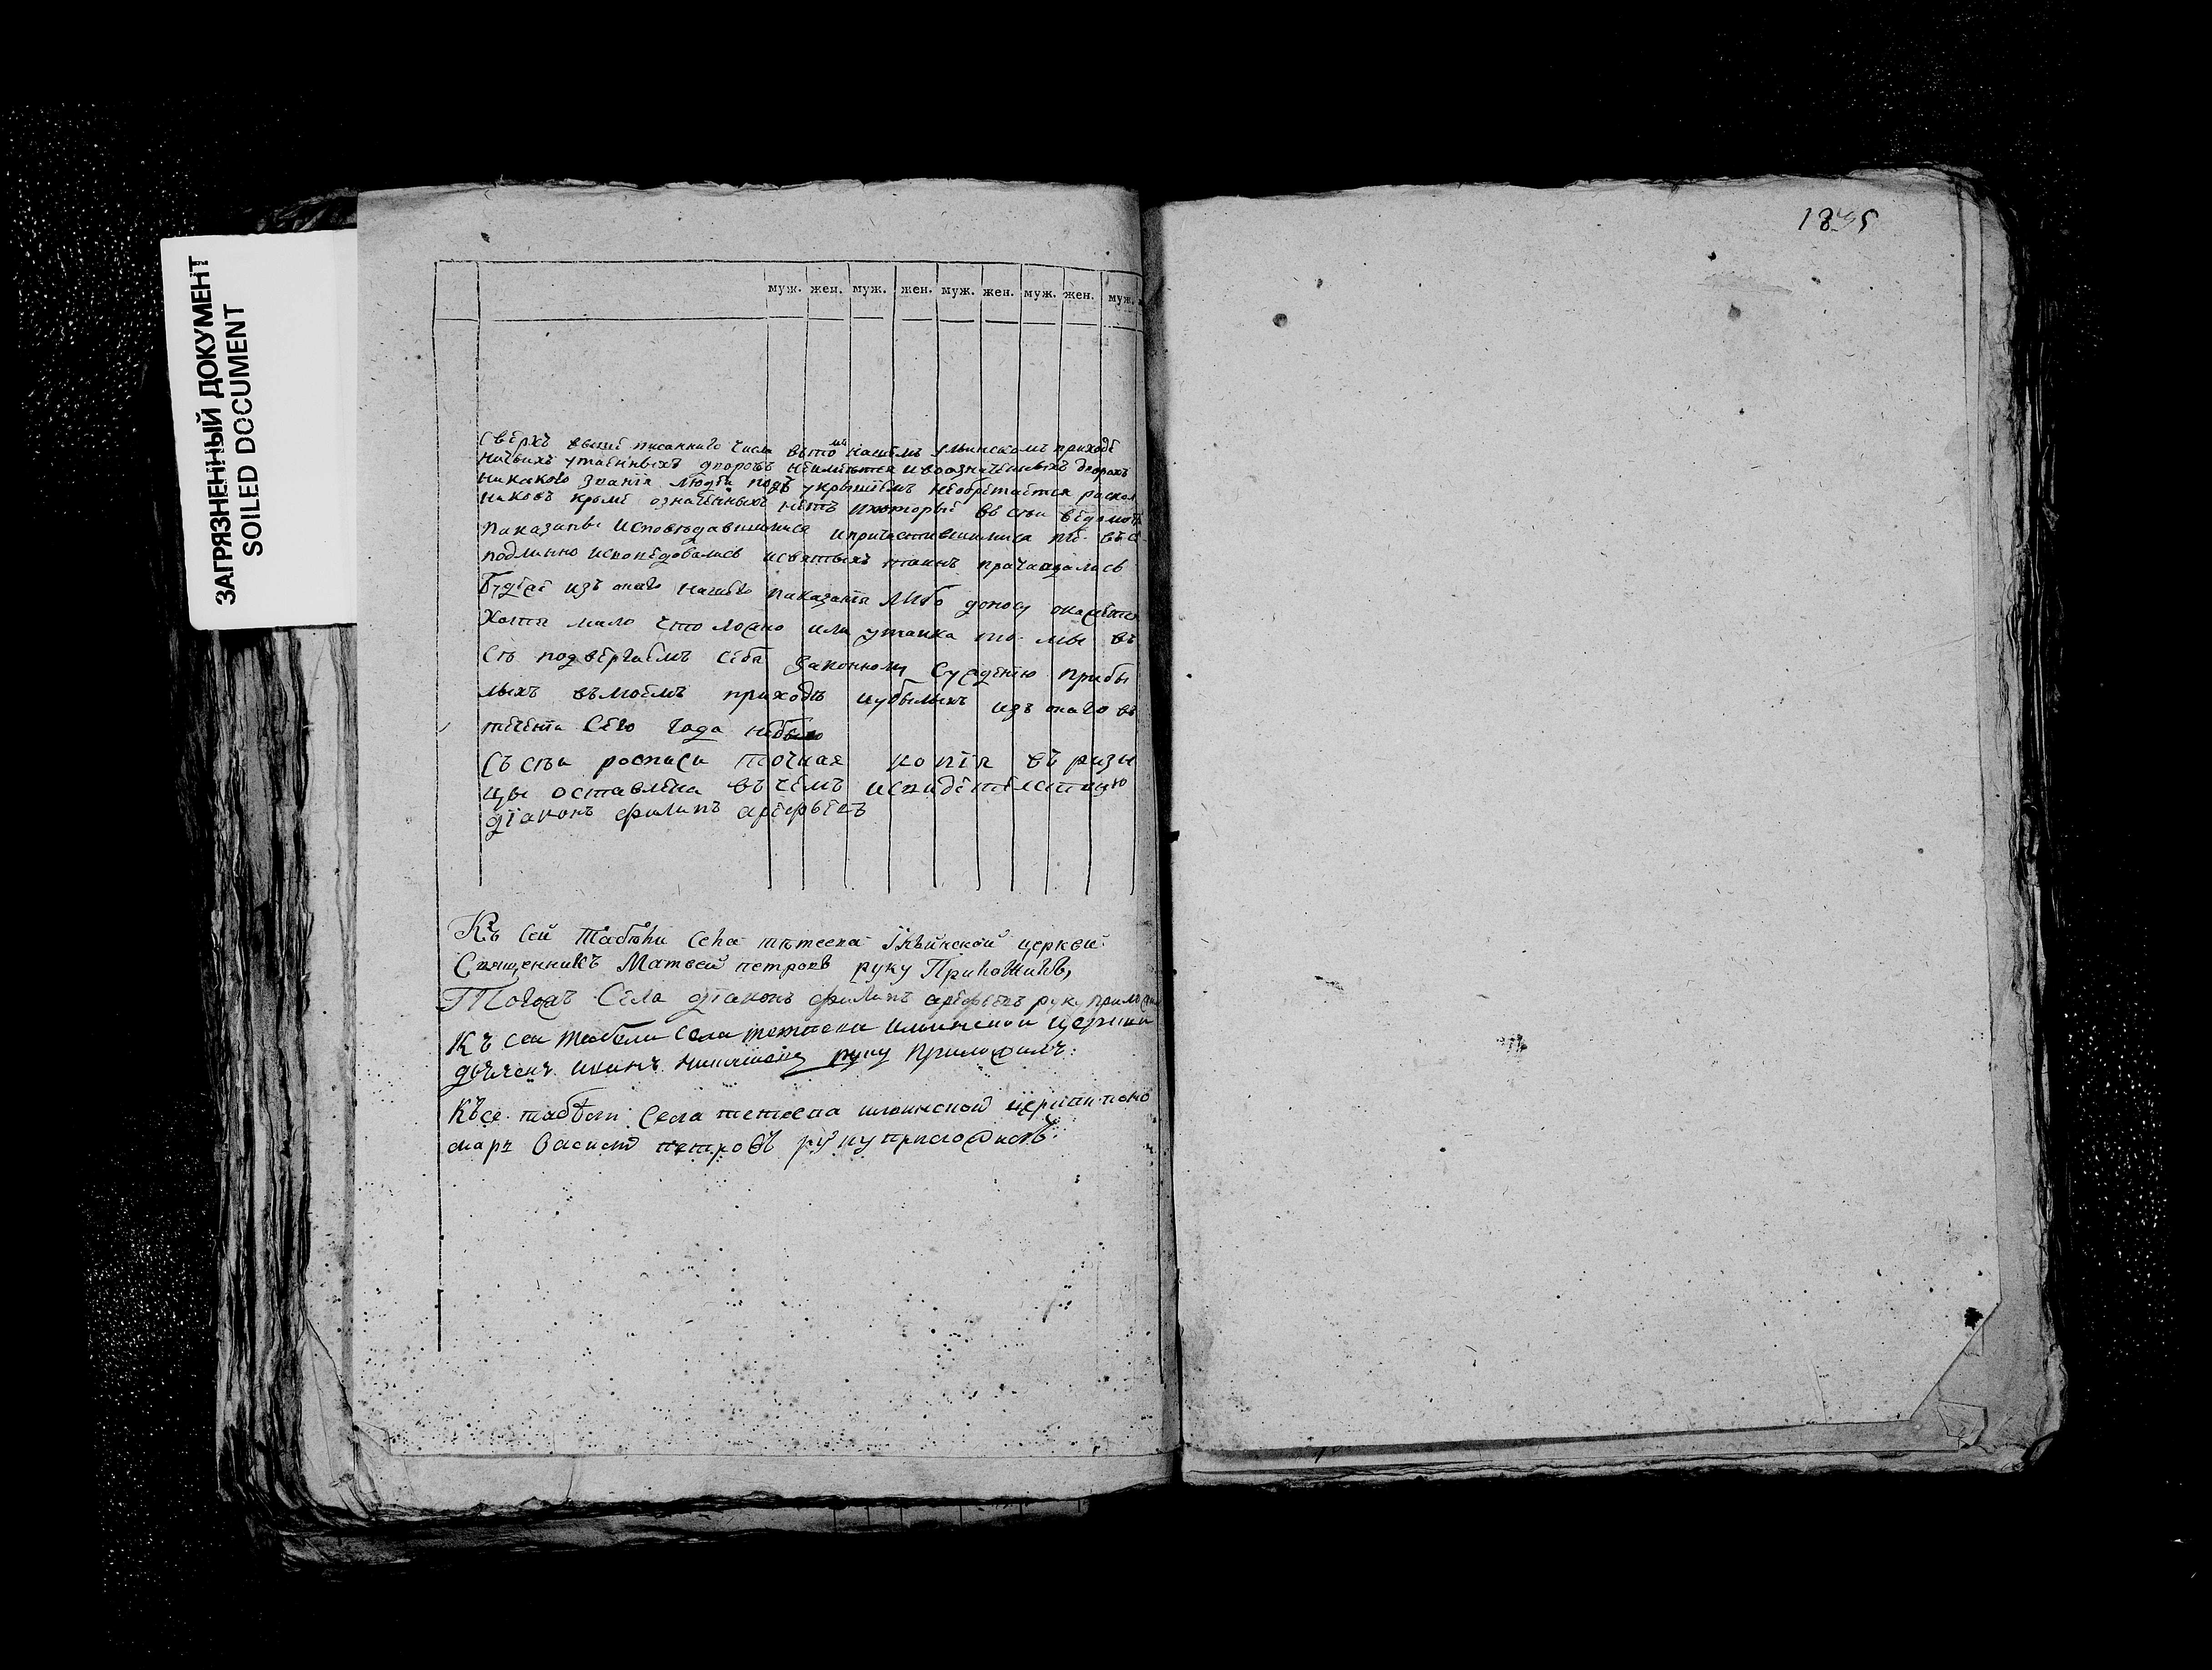 ЗАГРЯЗНЕННЫЙ ДОКУМЕНТ
SOILED DOCUMENT
муж. жен. муж. жен. муж. жен. муж. жен. муж.
Сверхъ выше писаннаго числа нашемъ приходѣ
утаенныхъ дворовъ неимѣется ивоозначенныхъ дворахъ
никакова званїя людеи подъ укрытїемъ необретается раскол
никовъ кроме означенныхъ нетъ икоторые въ сеи ведомости
показаны исповедавшимися ипричастившимися те все
подлинно исповедовались исвятыхъ таинъ причащались
Будее изъ онаго нашего показанїя либо доносу окажется
Хотя мало что ложно или утаика то мы въ
семъ подвергаемъ себя законному Сужденїю прибы
лыхъ въмоемъ приходѣ иубылыхъ изъ онаго въ
теченїи Сего года небыло
Съ сеи росписи точная копїя въ ризни
цы оставлена въ чемъ исвидетелствую
дїаконъ филипъ арефьевъ
Къ Сей табели села тѣтеева Ильинской церкви
Священникъ Матвей петровъ руку Приложилъ,
Тогожъ Села дїаконъ филипъ арефьевъ руку приложилъ
Къ сеи табели Села тетеева илинской церкви
руку приложилъ:
Къ се табели Села тетеева илинской церкви поно
марь Василей петровъ руку приложилъ: